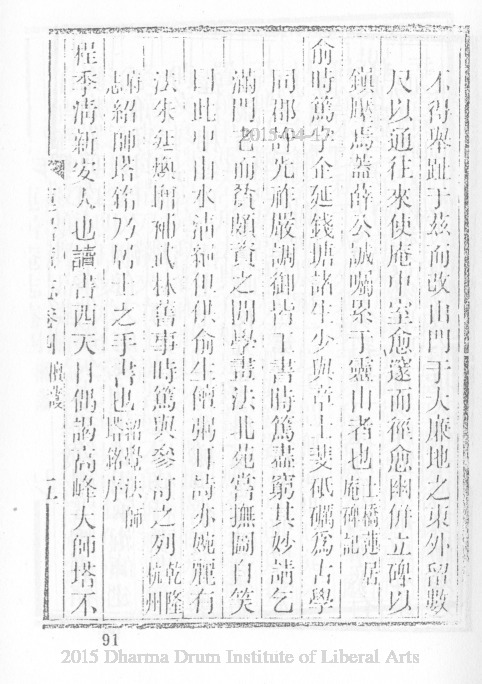 不得舉趾于茲而改山門于大雄地之東外留數
尺以通往來使庵中室愈邃而徑愈幽併立碑以
鎮壓焉蓋薛公誠囑累于靈山者也土橋蓮居庵碑記
俞時篤字企延錢塘諸生少與章士斐砥礪為古學
同邵 光祚嚴調御皆工書時篤盡窮其妙請乞
滿門 而 頗資之閒學畫法北苑嘗撫圖自笑
曰此中山水清 但供俞生饘粥耳詩亦婉麗有
法朱 增補武林舊事時篤與參訂之列乾隆杭州
府志紹師塔銘乃居士之手書也紹覺法師塔銘序
程季清新安人也讀書西天目偶謁高峰大師塔不
卷四 五
91
2015-04-17
2015 Dharma Drum Institute of Liberal Arts